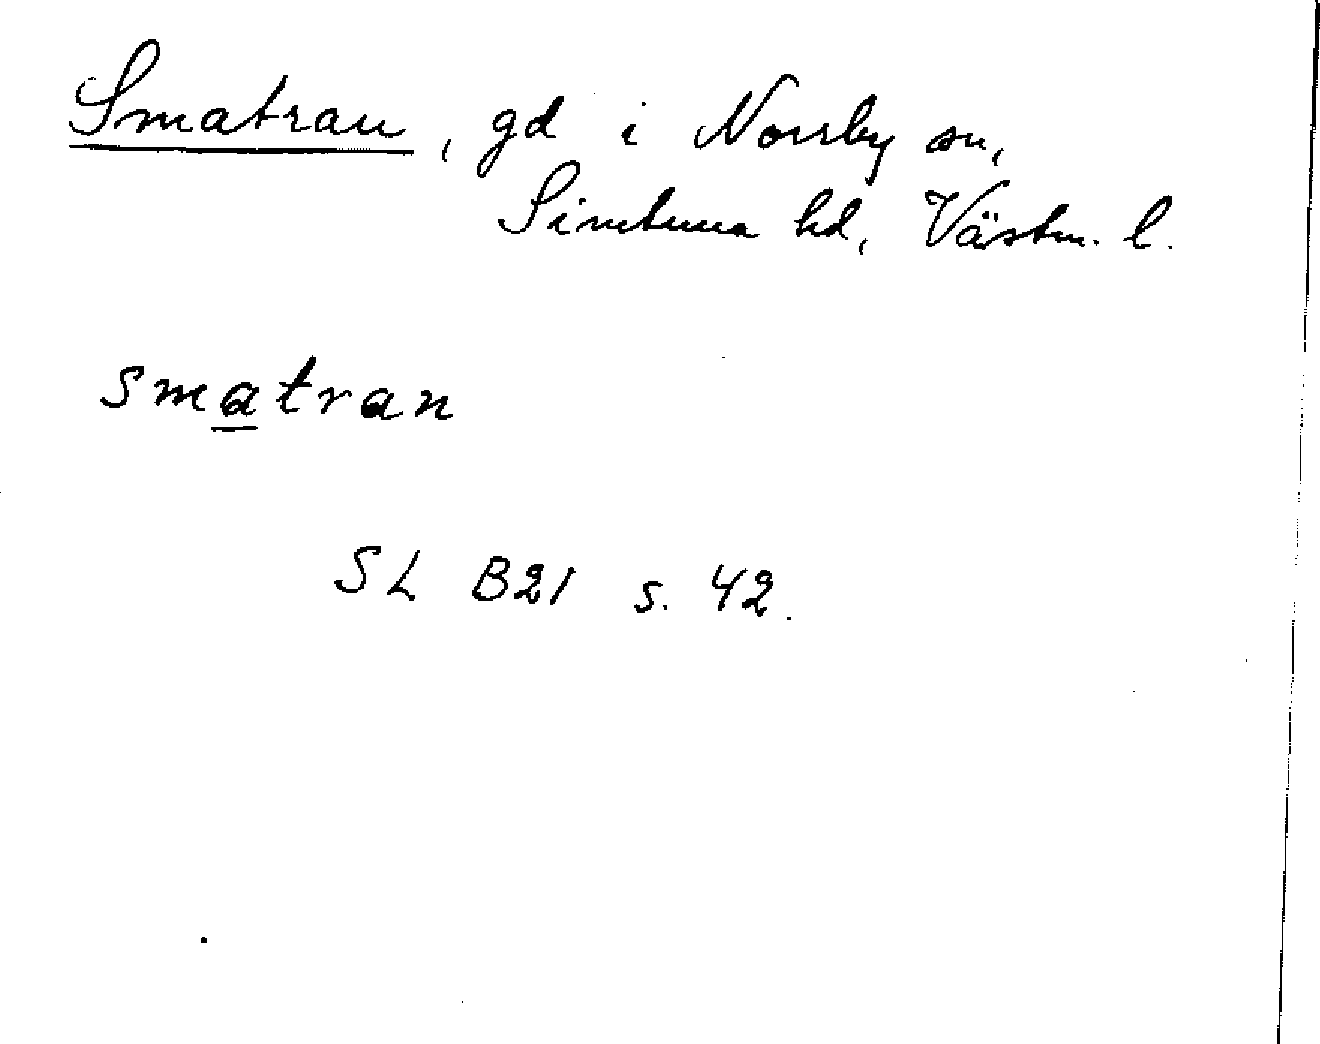 Smatran, gd i Norrby sn,
Simtuna hd, Västm. l.
smatran
SL B21 s. 42.